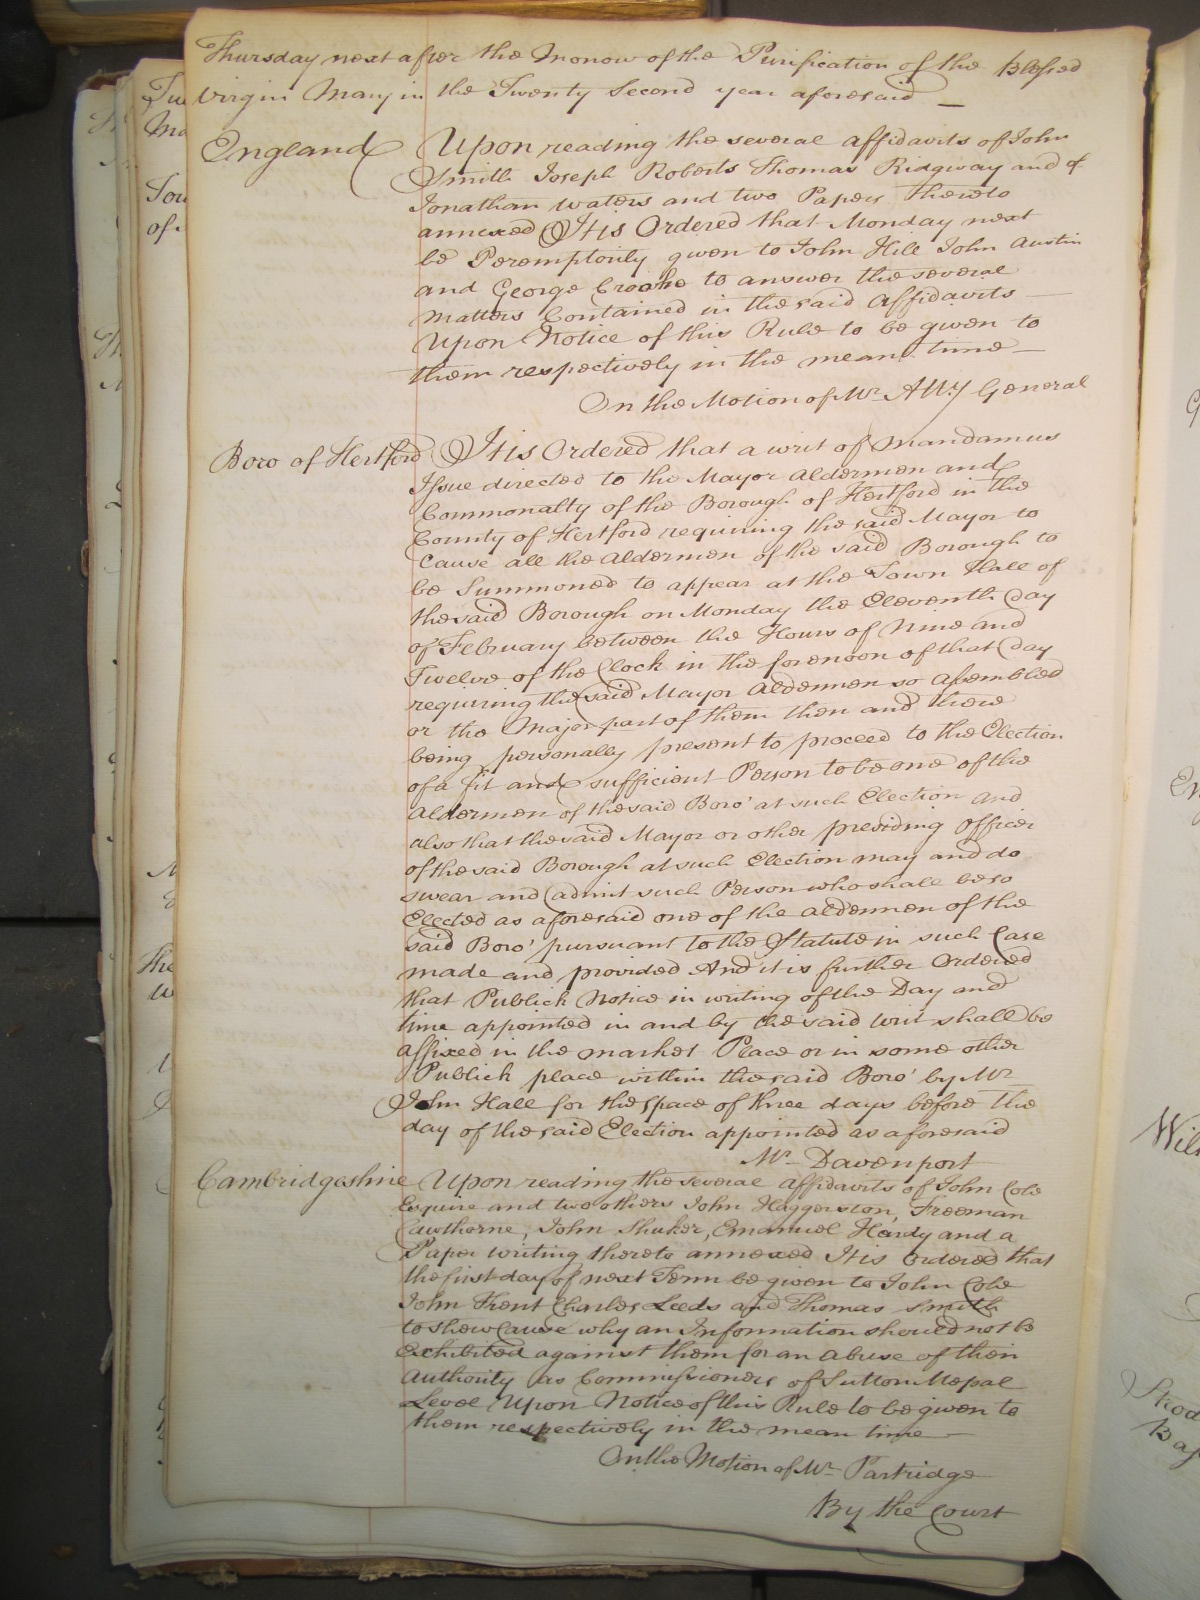 Thursday next after the Morrow of the Purification of the Blessed
Virgin Mary in the Twenty Second year aforesaid —
England Upon reading the several affidavits of John
Smith Joseph Roberts Thomas Ridgway and of
Jonathan Waters and two Papers thereto
annexed It is Ordered that Monday next
be Peremptorily given to John Hill John Austin
and George Crooke to answer the several
Matters Contained in the said Affidavits —
Upon Notice of this Rule to be given to
them respectively in the mean time —
On the Motion of Mr. Atty General
Boro of Hertford It is Ordered that a writ of Mandamus
Issue directed to the Mayor Aldermen and
Commonalty of the Borough of Hertford in the
County of Hertford requiring the said Mayor to
Cause all the Aldermen of the said Borough to
be Summoned to appear at the Town Hall of
the said Borough on Monday the Eleventh Day
of February between the Hours of Nine and
Twelve of the Clock in the forenoon of that Day
requiring the said Mayor Aldermen so assembled
or the Major part of them then and there
being personally present to proceed to the Election
of a fit and sufficient Person to be one of the
Aldermen of the said Boro' at such Election and
also that the said Mayor or other presiding Officer
of the said Borough at such Election may and do
swear and admit such Person who shall be so
Elected as aforesaid one of the Aldermen of the
said Boro' pursuant to the Statute in such Case
made and provided And it is further Ordered
that Publick Notice in writing of the Day and
time appointed in and by the said writ shall be
affixed in the market Place or in some other
Publick place within the said Boro' by Mr.
John Hall for the space of three days before the
day of the said Election appointed as aforesaid
Mr. Davenport
Cambridgeshire Upon reading the several Affidavits of John Cole
Esquire and two others John Haggerston, Freeman
Cawthorne, John Shuker, Emanuel Hardy and a
Paper writing thereto annexed It is Ordered that
the first day of next Term be given to John Cole
John Kent Charles Leeds and Thomas Smith
to shew Cause why an Information should not be
Exhibited against them for an Abuse of their
Authority as Commissioners of Sutton Mepal
Level Upon Notice of this Rule to be given to
them respectively in the mean time —
On the Motion of Mr. Partridge
By the Court